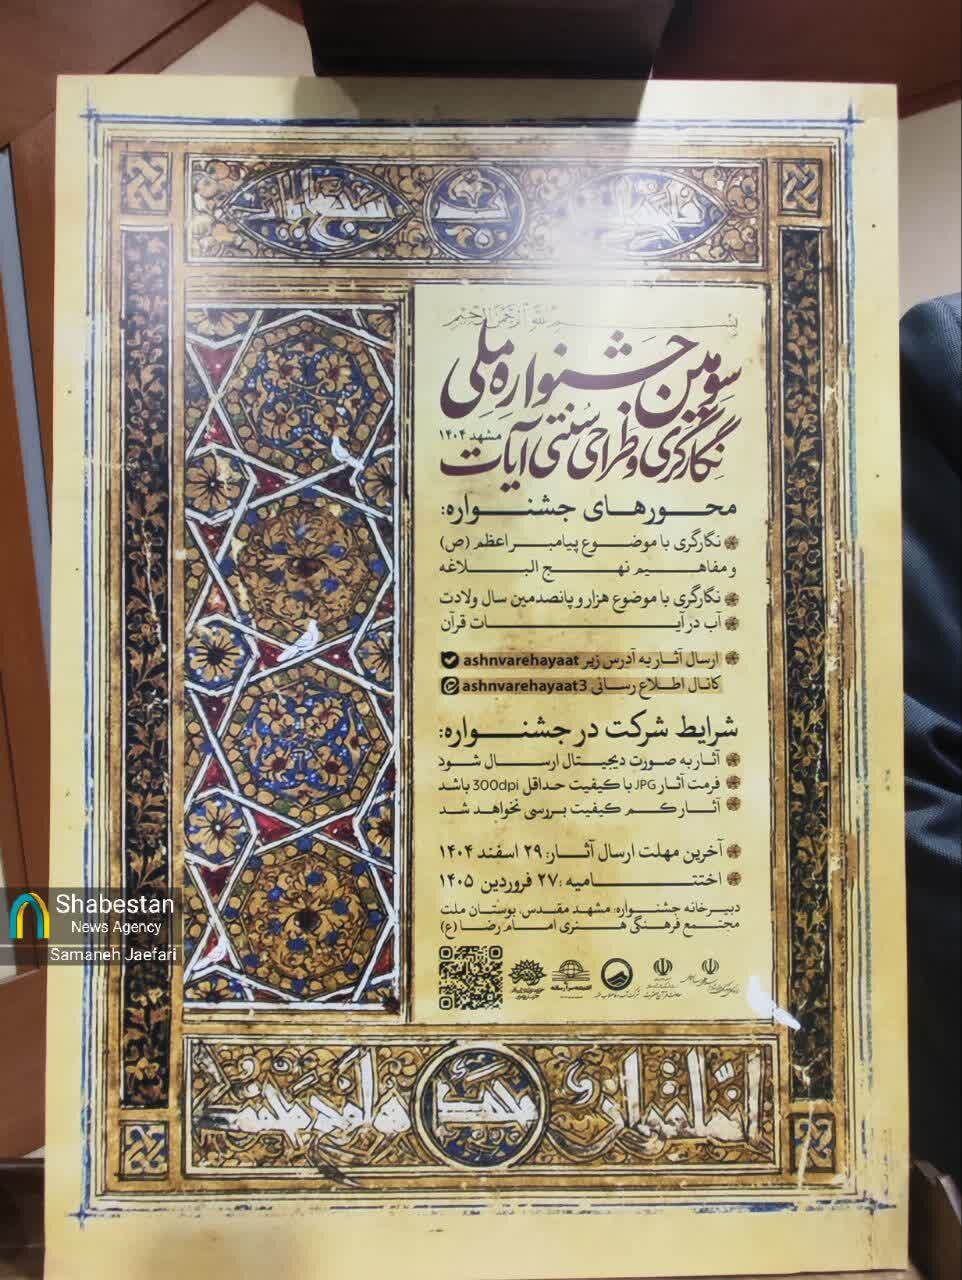 بسم الله الرحمن الرحیم
سومین جشنواره ملی
نگارگری و طراحی سنتی آیات
مشهد ۱۴۰۴
محورهای جشنواره:
نگارگری با موضوع پیامبر اعظم (ص)
و مفاهیم نهج البلاغه
نگارگری با موضوع هزار و پانصدمین سال ولادت
آب در آیات قرآن
ارسال آثار به آدرس زیر ashnvarehayaat
کانال اطلاع رسانی ashnvarehayaat3
شرایط شرکت در جشنواره:
آثار به صورت دیجیتال ارسال شود
فرمت آثار JPG با کیفیت حداقل 300dpi باشد
آثار کم کیفیت بررسی نخواهد شد
آخرین مهلت ارسال آثار: ۲۹ اسفند ۱۴۰۴
اختتامیه: ۲۷ فروردین ۱۴۰۵
دبیرخانه جشنواره: مشهد مقدس، بوستان ملت
مجتمع فرهنگی هنری امام رضا (ع)
Shabestan
News Agency
Samaneh Jaefari